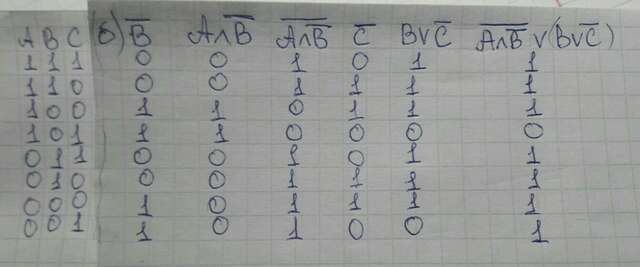 A B C б) B̅ A∧B̅ A̅∧̅B̅̅ C̅ B∨C̅ A̅∧̅B̅̅ ∨(B∨C̅)
1 1 1 0 0 1 0 1 1
1 1 0 0 0 1 1 1 1
1 0 0 1 1 0 1 1 1
1 0 1 1 1 0 0 0 0
0 1 1 0 0 1 0 1 1
0 1 0 0 0 1 1 1 1
0 0 0 1 0 1 1 1 1
0 0 1 1 0 1 0 0 1